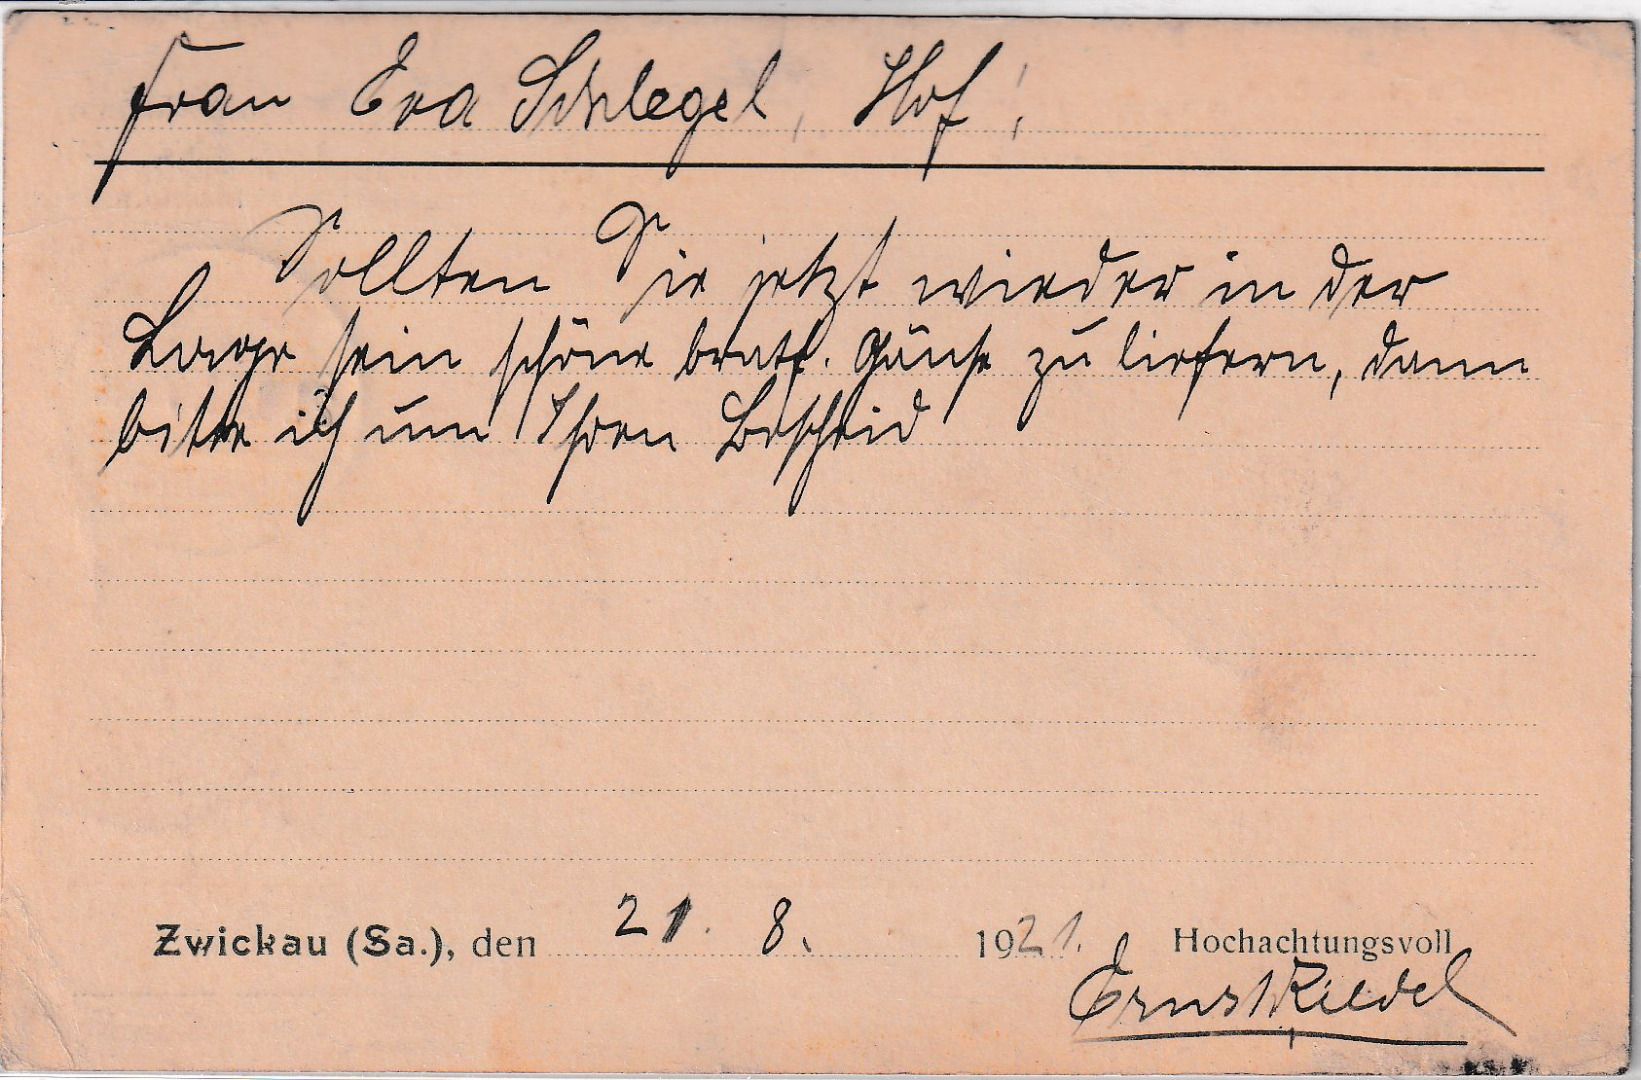 Frau Eva Schlegel, Hof!
Sollten Sie jetzt wieder in der
Lage sein schöne bratf. Gänse zu liefern, dann
bitte ich um Ihren Bescheid
Zwickau (Sa.), den 21. 8. 1921. Hochachtungsvoll
Ernst Riedel